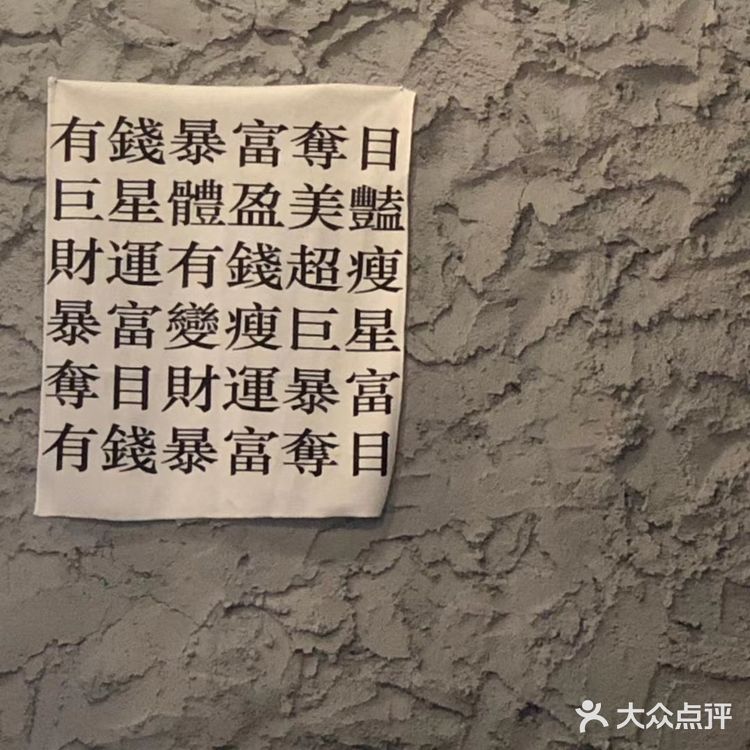 有錢暴富奪目
巨星體盈美豔
財運有錢超瘦
暴富變瘦巨星
奪目財運暴富
有錢暴富奪目
大众点评